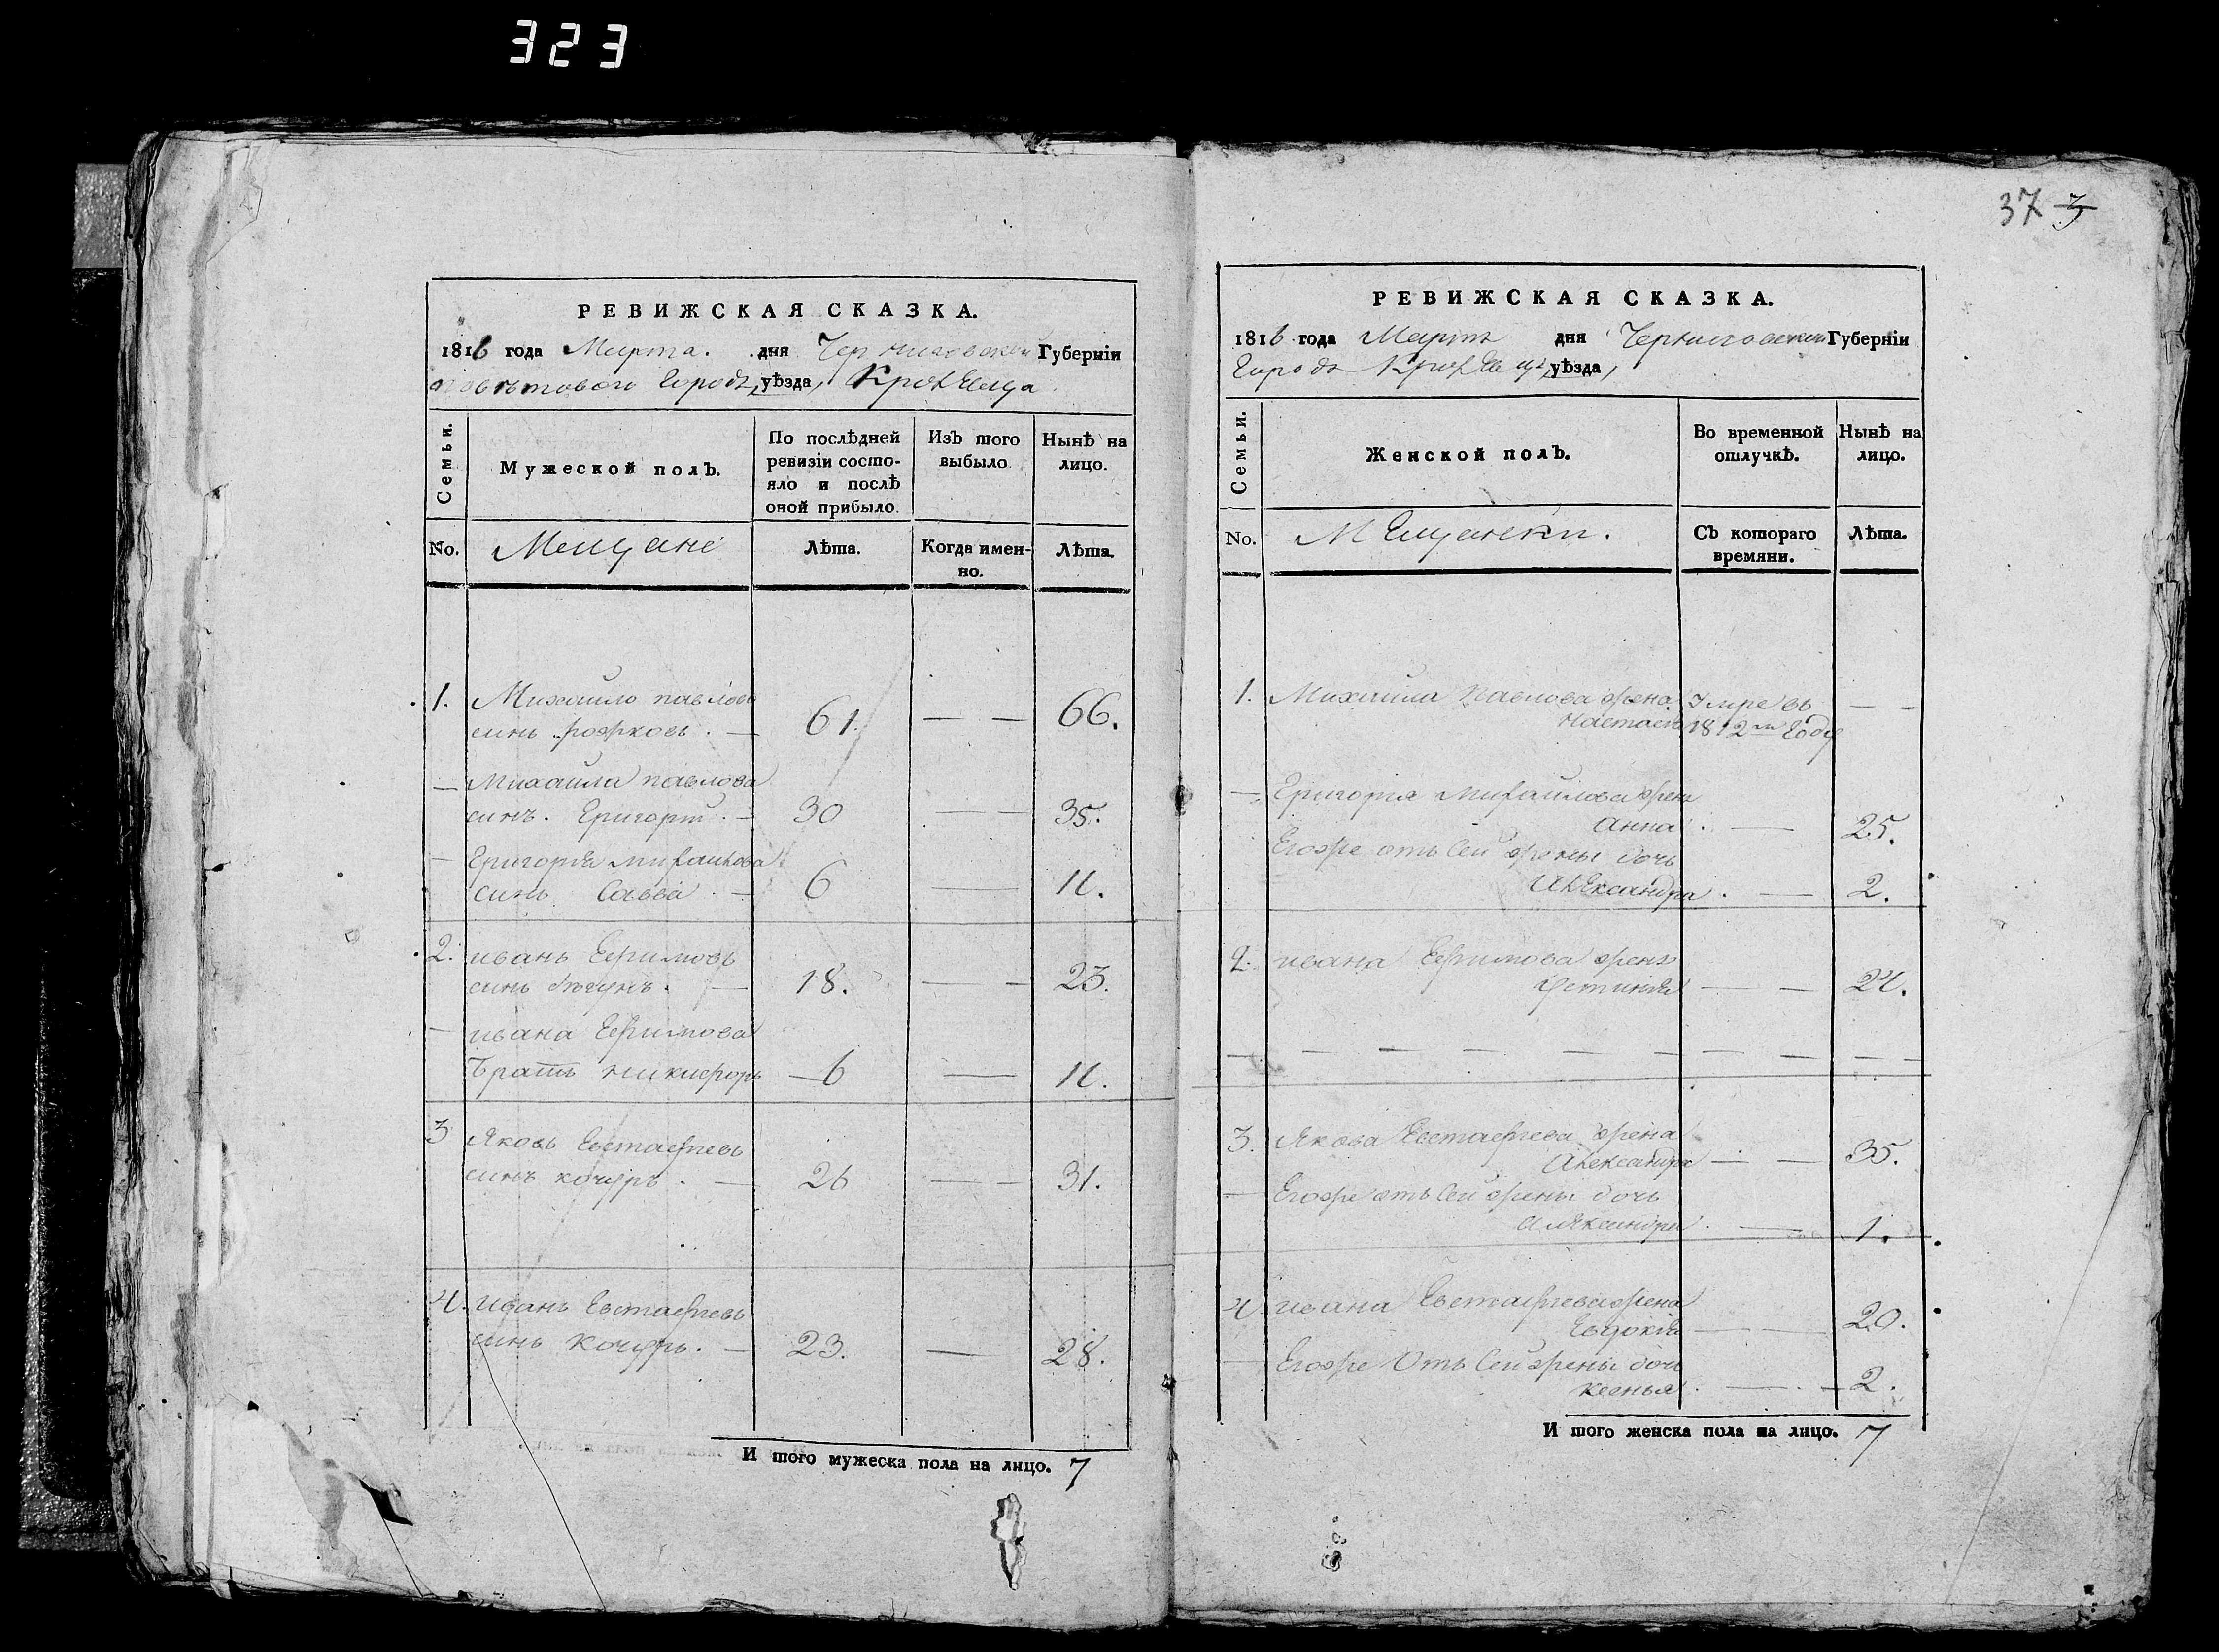 323
37 3
РЕВИЖСКАЯ СКАЗКА.
1816 года Марта. дня Черниговской Губерніи
повѣтового Города, уѣзда, Кролевца
Семьи.
Мужеской полъ.
По послѣдней ревизіи состояло и послѣ оной прибыло.
Изъ того выбыло.
Нынѣ на лицо.
No.
Мещане
Лѣта.
Когда именно.
Лѣта.
1. Михаило павловъ
синъ рожковъ. — 61. — — 66.
— Михаила павлова
синъ. Григорій. — 30 — — 35.
— Григорія михаилова
синъ Савва — 6 — 11.
2. иванъ Ефимовъ
синъ — 18. — — 23.
— ивана Ефимова
Братъ никифоръ — 6 — 11.
3 Яковъ Евстафіевъ
синъ кочуръ. — 26 — — 31.
4. иванъ Евстафіевъ
синъ Кочуръ. — 23. — 28.
И того мужеска пола на лицо. 7
РЕВИЖСКАЯ СКАЗКА.
1816 года Марта дня Черниговской Губерніи
Города Кролевца, уѣзда,
Семьи.
Женской полъ.
Во временной отлучкѣ.
Нынѣ на лицо.
No.
Мещанки.
Съ котораго времяни.
Лѣта.
1. Михаила Павлова жена Умре въ — —
настася 1812м Году
— Григорія Михаилова жена
анна. — 25.
Егоже отъ Сей жены дочь
александра. — 2.
2. ивана Ефимова жена
Устинія — — 24.
— — — — — — — — — —
3. Якова Евстафіева жена
александра — — 35.
— Егоже отъ Сей жены дочь
александра. — 1.
4. ивана Евстафіева жена
Евдокія — — 20.
— Егоже Отъ Сей жены дочь
ксенья. — — 2.
И того женска пола на лицо. 7